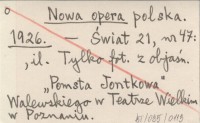 Nowa opera polska.
1926. — Świat 21, nr 47:
, il. Tylko fot. z objaśn.
"Pomsta Jontkowa"
Walewskiego w Teatrze Wielkim
w Poznaniu.